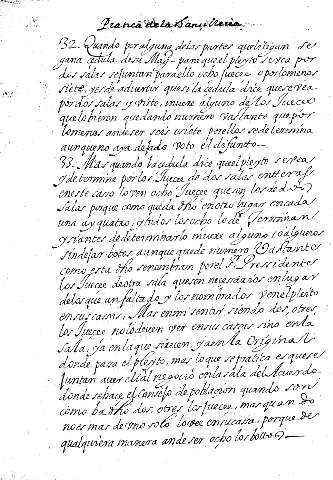 Pratica de la Chancilleria
32. Quando por alguna de las partes que litigan se
gana cedula de su Mag. para que el pleyto se vea por
dos salas se juntan para ello ocho jueces o por lo menos
siete, y es de advertir que si la cedula dice que se vea
por dos salas y visto, muere alguno de los Jueces
que lo vieron quedando numero vastante que por
lo menos an de ser seis o siete por ellos se determina
aunque no aya dejado voto el difunto.
33. Mas quando la cedula dice que el pleyto se vea
y determine por los Jueces de dos salas enteras
en este caso lo ven ocho Jueces que son los de dos
salas porque como queda dho en otro lugar en cada
una ay quatro, y todos los ocho lo determinan
y si antes de determinarlo muere alguno o algunos
sin dejar botos aunque quede numero vastante
como esta dho se nombran por el Sr. Pressidente
los Jueces de otra sala que son necesarios en lugar
de los que an faltado y los nombrados ven el pleito
en sus casas, Mas en mi sentir siendo dos, o tres
los Jueces no lo deven ver en sus casas sino en la
sala, ya en la que
donde para el pleyto, mas lo que se platica es que se
juntan a ver el tal negocio en la sala del Acuerdo
donde se hace el Consejo de poblacion quando son
como ba dho dos, o tres los jueces, mas quando
no es mas de uno solo lo vee en su casa, porque de
qualquiera manera an de ser ocho los botos